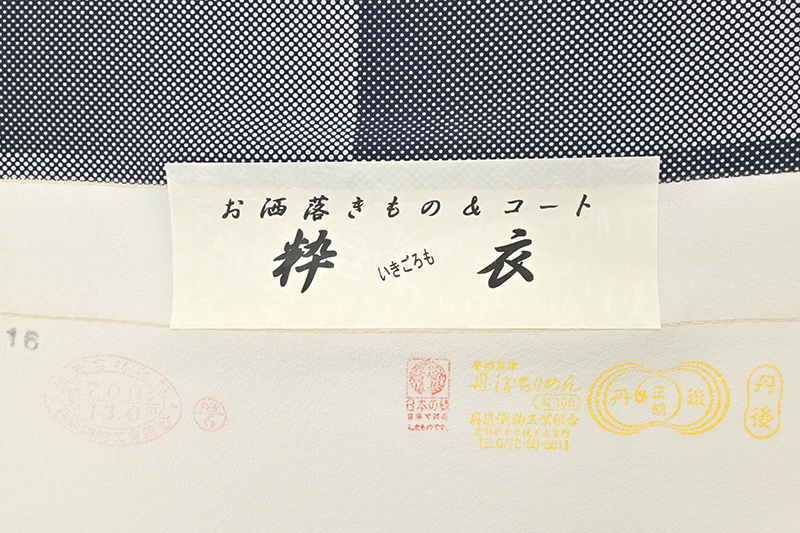 お洒落きもの&コート
粋 いきごろも 衣
16
700
13.0
日本の絹
丹後ちりめん
絹100
丹後織物工業組合
TEL0772-68-5211
丹 正絹 後
丹後